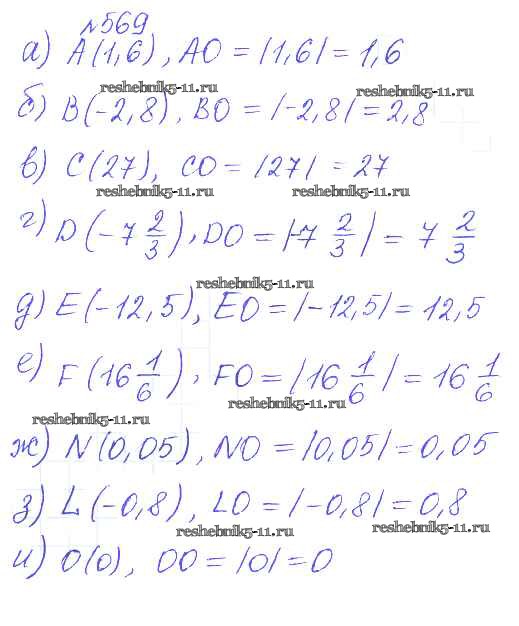 №569
а) A(1,6), AO = |1,6| = 1,6
reshebnik5-11.ru reshebnik5-11.ru
б) B(-2,8), BO = |-2,8| = 2,8
в) C(27), CO = |27| = 27
reshebnik5-11.ru reshebnik5-11.ru
г) D(-7 2/3), DO = |-7 2/3| = 7 2/3
reshebnik5-11.ru
д) E(-12,5), EO = |-12,5| = 12,5
е) F(16 1/6), FO = |16 1/6| = 16 1/6
reshebnik5-11.ru
reshebnik5-11.ru
ж) N(0,05), NO = |0,05| = 0,05
з) L(-0,8), LO = |-0,8| = 0,8
reshebnik5-11.ru reshebnik5-11.ru
и) O(0), OO = |0| = 0